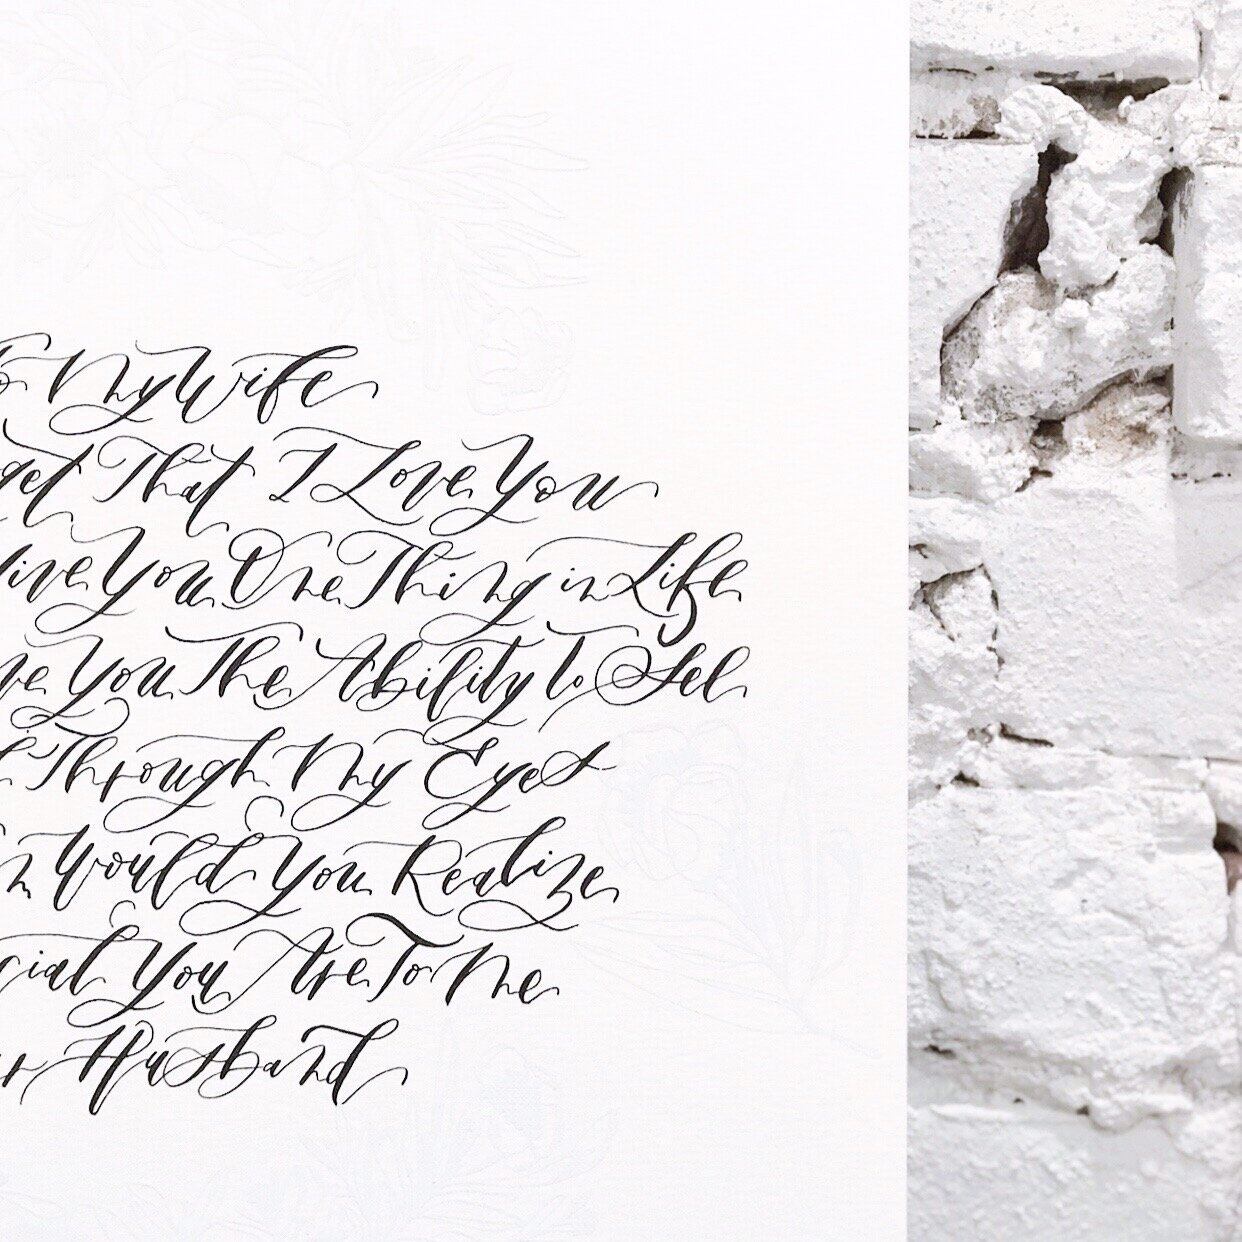 To My Wife
get That I Love You
Give You One Thing in Life
ve You The Ability to Sel
Through My Eyes
Would You Realize
cial You Are To Me
ur Husband